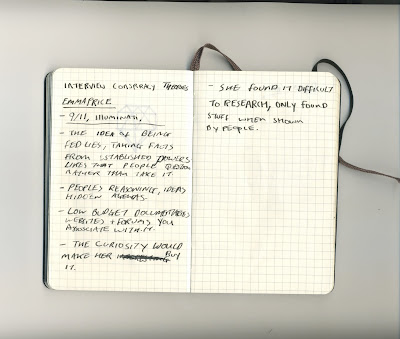 INTERVIEW CONSPIRACY THEORIES
EMMA PRICE
- 9/11, ILLUMINATI,
- THE IDEA OF BEING
FED LIES, TAKING FACTS
FROM ESTABLISHED POWERS
LIKES THAT PEOPLE QUESTION
RATHER THAN TAKE IT
- PEOPLES REASONING, IDEAS
HIDDEN AGENDAS
- LOW BUDGET DOCUMENTARIES
WEBSITES + FORUMS YOU
ASSOCIATE WITH IT.
- THE CURIOSITY WOULD
MAKE HER BUY
IT.
- SHE FOUND IT DIFFICULT
TO RESEARCH, ONLY FOUND
STUFF WHEN SHOWN
BY PEOPLE.